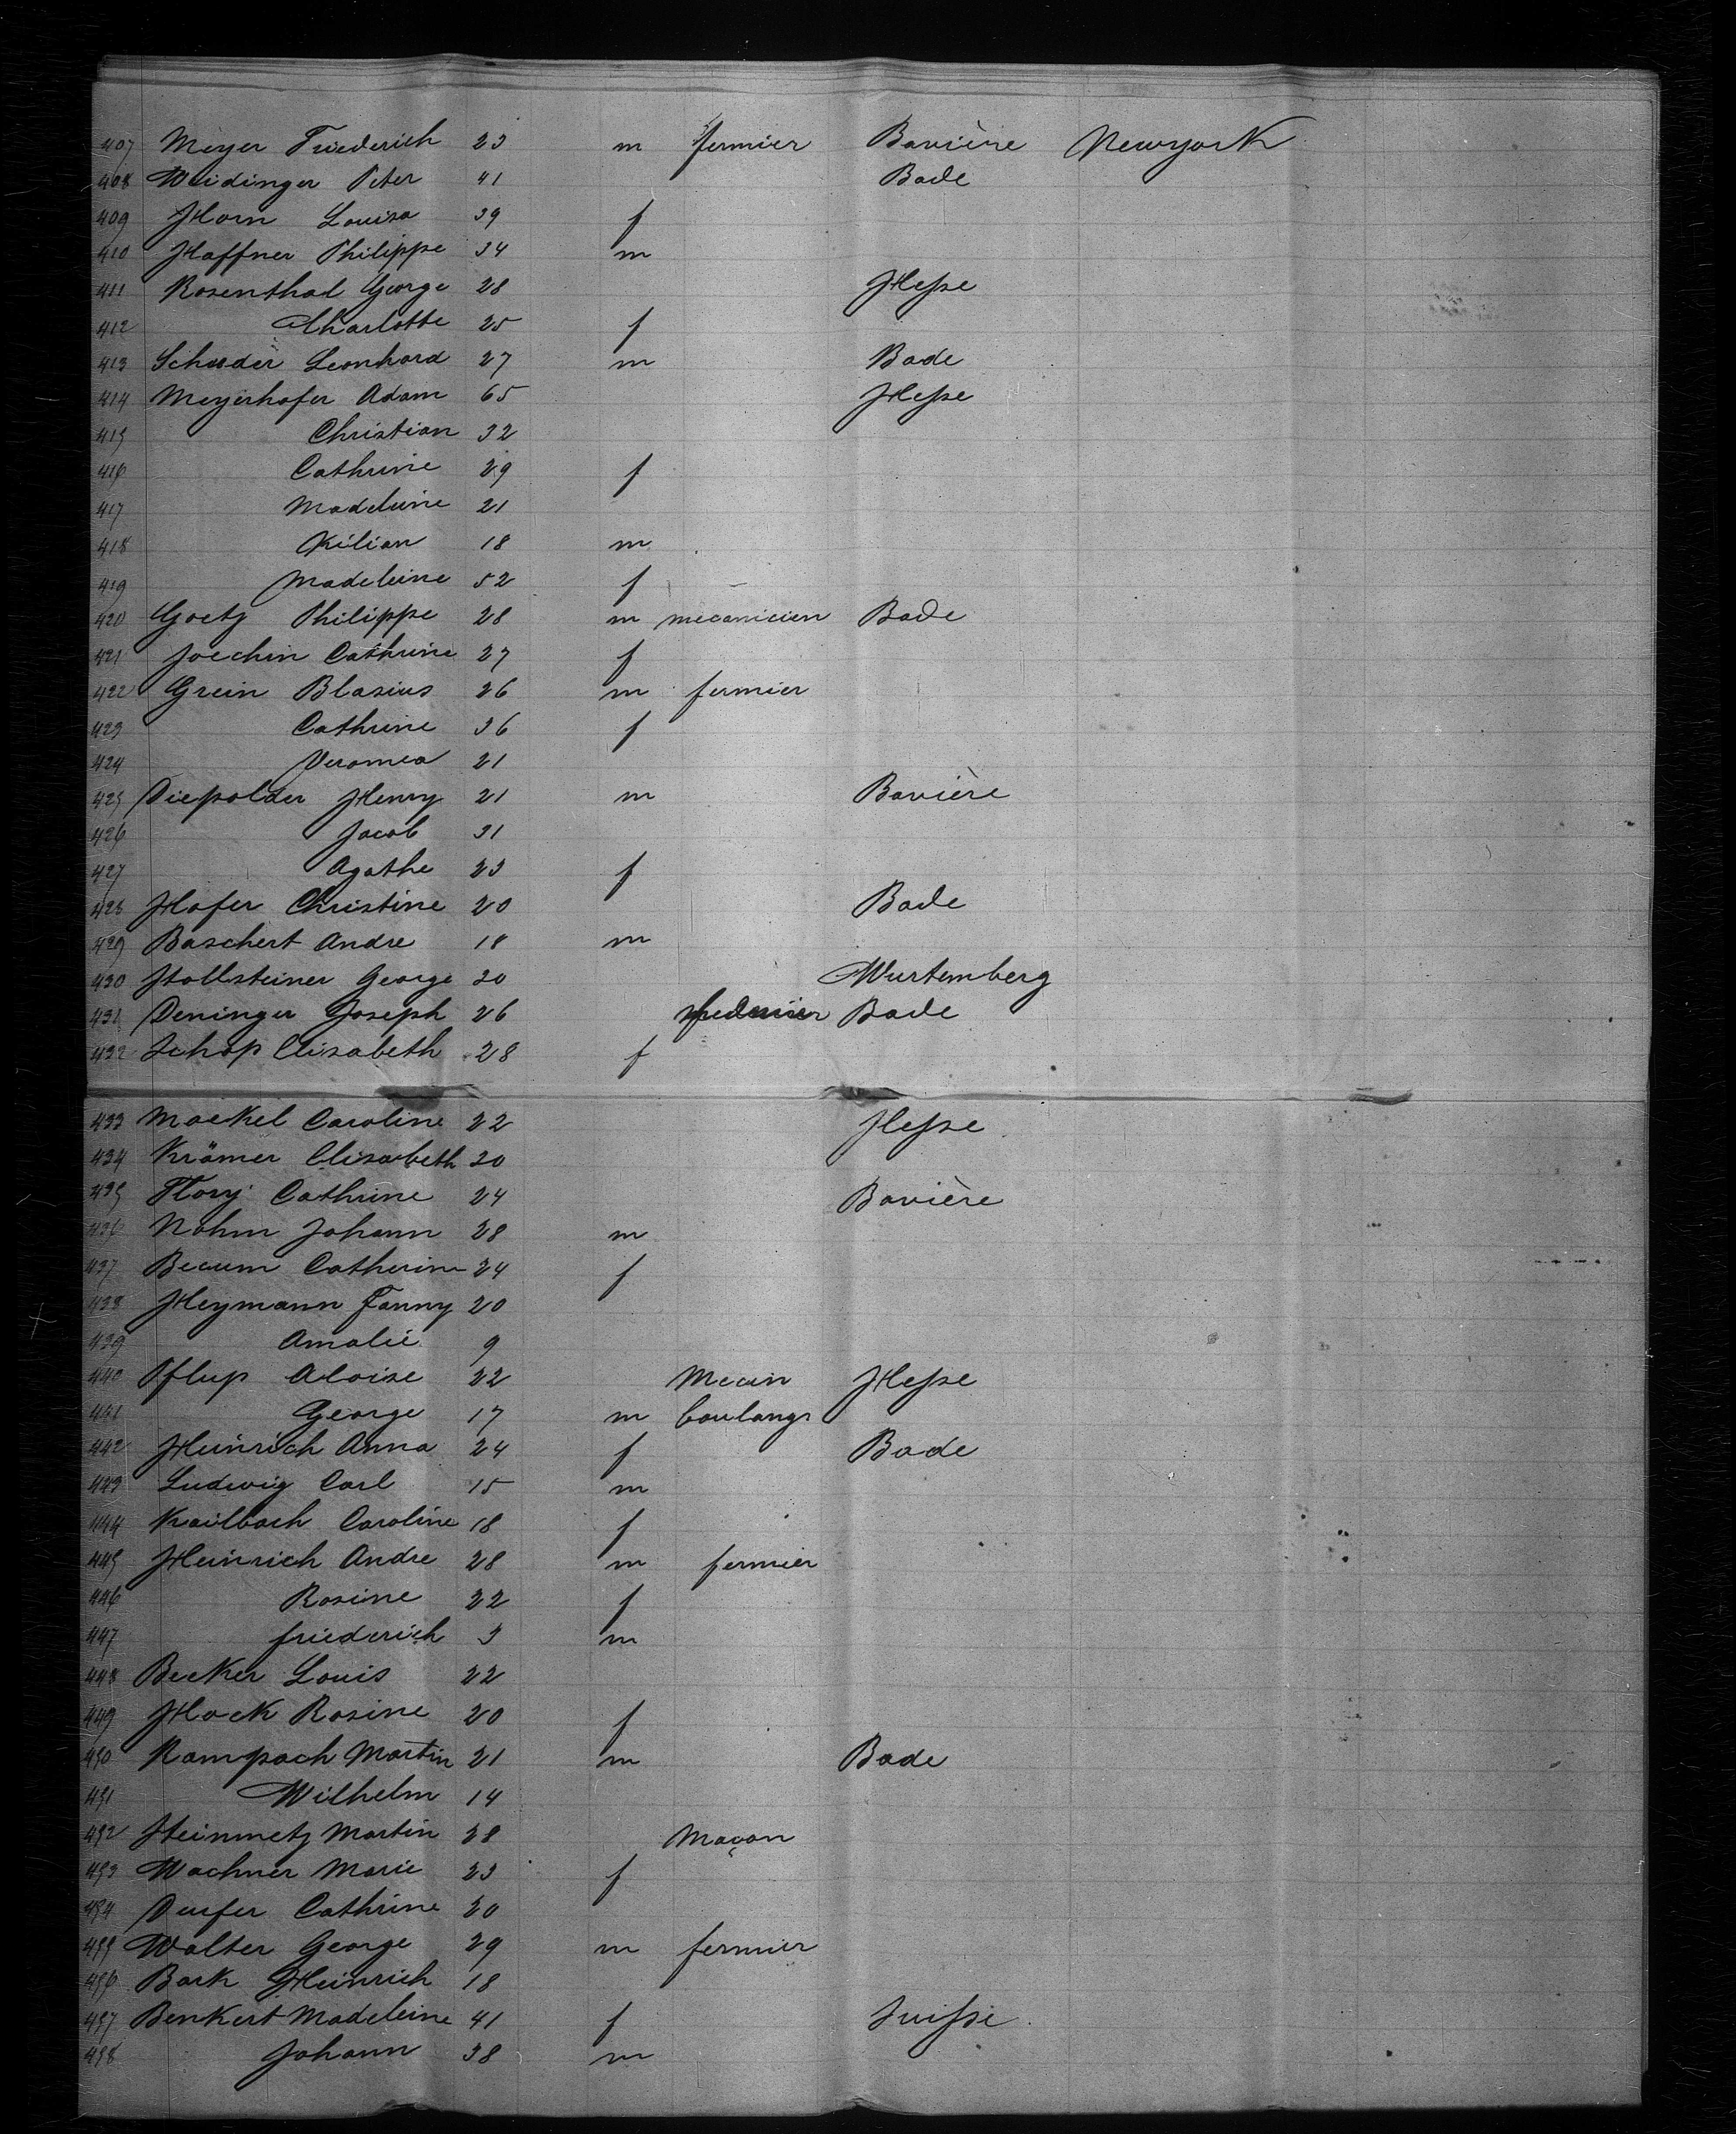 407 Meyer Friederich 23 m fermier Bavière Newyork
408 Weidinger Peter 41 Bade
409 Horn Louisa 39 f
410 Haffner Philippe 34 m
411 Rosenthal George 28 Hesse
412 Charlotte 25 f
413 Schader Leonhard 27 m Bade
414 Meyerhofer Adam 65 Hesse
415 Christian 32
416 Cathrine 29 f
417 Madeleine 21
418 Kilian 18 m
419 Madeleine 52 f
420 Goetz Philippe 28 m mecanicien Bade
421 Joechin Cathrine 27 f
422 Grein Blasius 26 m fermier
423 Cathrine 36 f
424 Veronica 21
425 Diepolder Henry 21 m Bavière
426 Jacob 31
427 Agathe 23 f
428 Hofer Christine 20 Bade
429 Baschert Andre 18 m
430 Hollsteiner George 30 Wurtemberg
431 Deninger Joseph 26 Bade
432 Schop Elisabeth 28 f
433 Mackel Caroline 22 Hesse
434 Krämer Elisabeth 30
435 Flory Cathrine 24 Bavière
436 Nohm Johann 28 m
437 Becum Catherine 24 f
438 Heymann Fanny 20
439 Amalie 9
440 Pflup Aloise 22 Mecan Hesse
441 George 17 m boulangr
442 Heinrich Anna 24 f Bade
443 Ludwig Carl 15 m
444 Kailbach Caroline 18 f
445 Heinrich Andre 28 m fermier
446 Rosine 22 f
447 friederich 3 m
448 Becker Louis 22
449 Hock Rosine 20 f
450 Rampach Martin 21 m Bade
451 Wilhelm 14
452 Steinmetz Martin 28 Maçon
453 Wachner Marie 23 f
454 Durfer Cathrine 20
455 Walter George 29 m fermier
456 Bark Heinrich 18
457 Benkert Madeleine 41 f Suisse
458 Johann 38 m